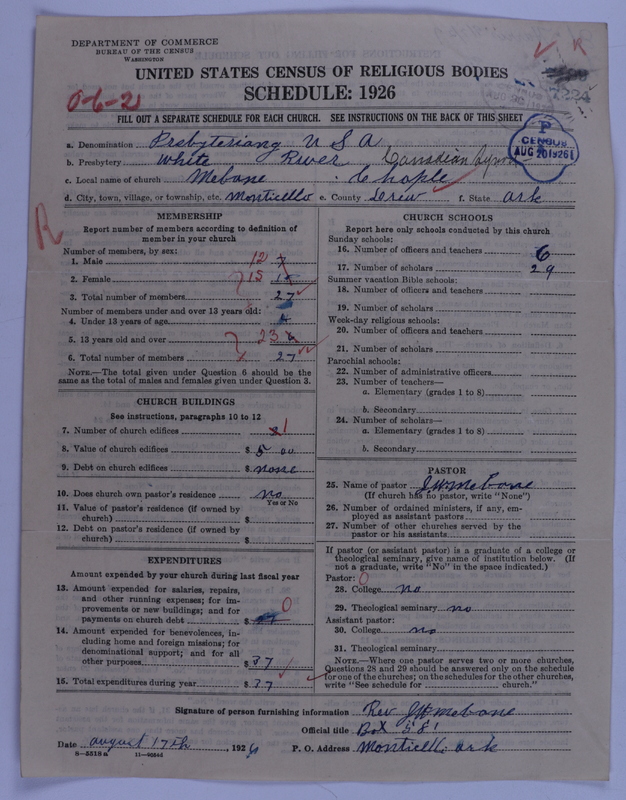 DEPARTMENT OF COMMERCE
BUREAU OF THE CENSUS
WASHINGTON
UNITED STATES CENSUS OF RELIGIOUS BODIES
SCHEDULE: 1926
0-6-21
FILL OUT A SEPARATE SCHEDULE FOR EACH CHURCH. SEE INSTRUCTIONS ON THE BACK OF THIS SHEET
P
CENSUS
AUG 20 1926
a. Denomination Presbyteriang U S A
b. Presbytery White River Canadian Synod
c. Local name of church Mebane Chaple
d. City, town, village, or township, etc. Monticello e. County Drew f. State Ark
R
MEMBERSHIP
Report number of members according to definition of
member in your church
Number of members, by sex:
1. Male 12
2. Female 15
3. Total number of members 27
Number of members under and over 13 years old:
4. Under 13 years of age 4
5. 13 years old and over 23
6. Total number of members 27
NOTE.—The total given under Question 6 should be the
same as the total of males and females given under Question 3.
CHURCH BUILDINGS
See instructions, paragraphs 10 to 12
7. Number of church edifices 1
8. Value of church edifices $ 500
9. Debt on church edifices $ none
10. Does church own pastor's residence no
Yes or No
11. Value of pastor's residence (if owned by
church) $
12. Debt on pastor's residence (if owned by
church) $
EXPENDITURES
Amount expended by your church during last fiscal year
13. Amount expended for salaries, repairs,
and other running expenses; for im-
provements or new buildings; and for
payments on church debt $ 0
14. Amount expended for benevolences, in-
cluding home and foreign missions; for
denominational support; and for all
other purposes $ 37
15. Total expenditures during year $ 37
CHURCH SCHOOLS
Report here only schools conducted by this church
Sunday schools:
16. Number of officers and teachers 6
17. Number of scholars 29
Summer vacation Bible schools:
18. Number of officers and teachers
19. Number of scholars
Week-day religious schools:
20. Number of officers and teachers
21. Number of scholars
Parochial schools:
22. Number of administrative officers
23. Number of teachers—
a. Elementary (grades 1 to 8)
b. Secondary
24. Number of scholars—
a. Elementary (grades 1 to 8)
b. Secondary
PASTOR
25. Name of pastor J W Mebane
(If church has no pastor, write "None")
26. Number of ordained ministers, if any, em-
ployed as assistant pastors
27. Number of other churches served by the
pastor or his assistants
If pastor (or assistant pastor) is a graduate of a college or
theological seminary, give name of institution below. (If
not a graduate, write "No" in the space indicated.)
Pastor: 0
28. College no
29. Theological seminary no
Assistant pastor:
30. College no
31. Theological seminary
NOTE.—Where one pastor serves two or more churches,
Questions 28 and 29 should be answered only on the schedule
for one of the churches; on the schedules for the other churches,
write "See schedule for church."
Signature of person furnishing information Rev J W Mebane
Official title Box 581
Date august 17th, 1926 P. O. Address Monticello ark
8—5518a 11—90546